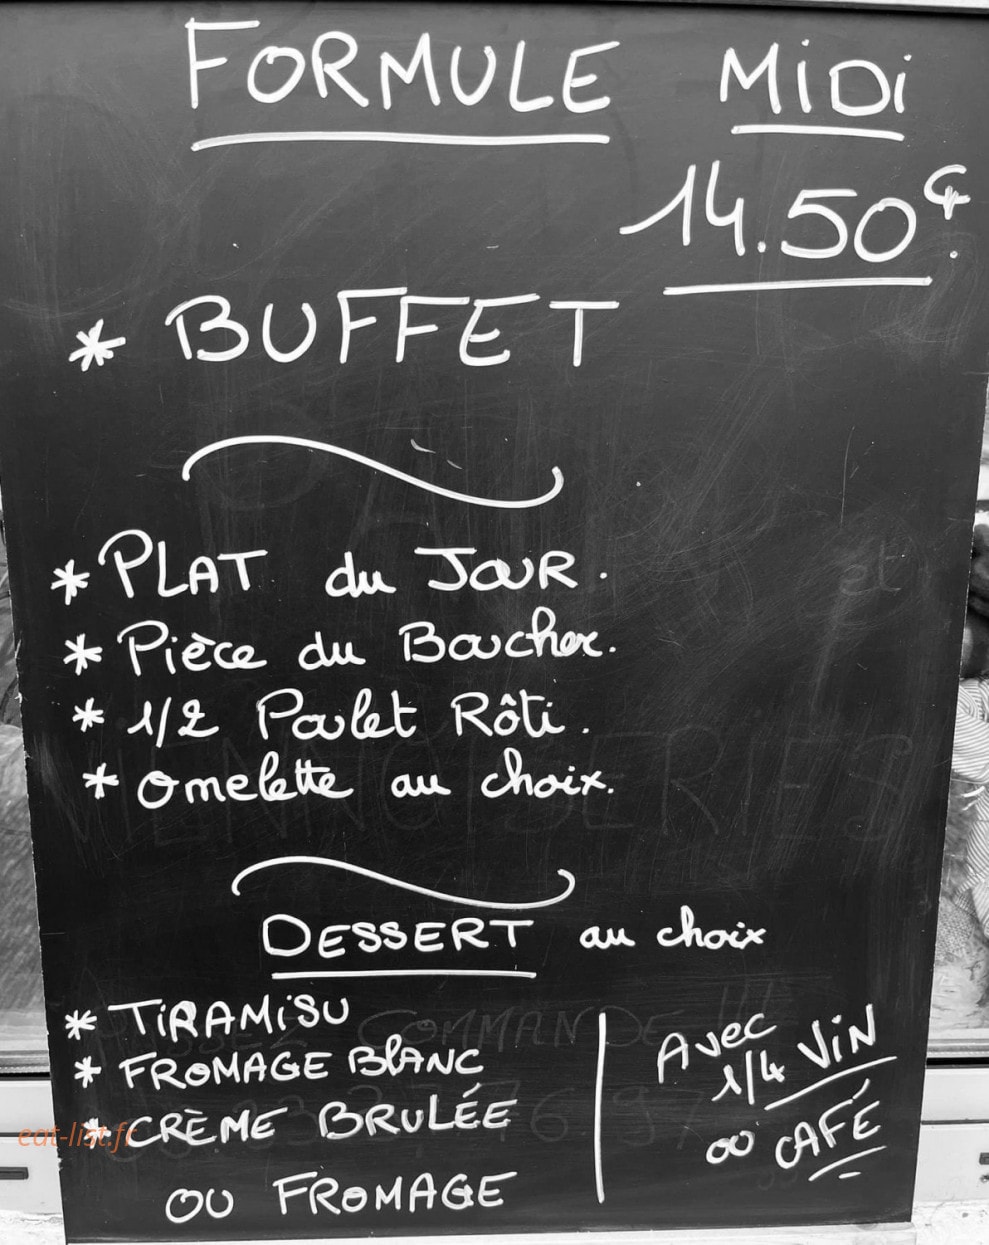 FORMULE MiDi
14.50€.
* BUFFET
* PLAT du JOUR.
* Pièce du Boucher.
* 1/2 Poulet Rôti.
* Omelette au choix.
DESSERT au choix
* TiRAMiSU
* FROMAGE BlANC
* CRÈME BRULÉE
OU FROMAGE
Avec
1/4 ViN
ou CAFÉ
eat-list.fr